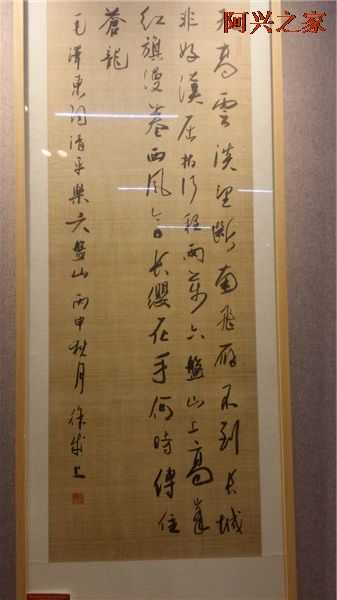 阿兴之家
天高雲淡望斷南飛雁不到長城
非好漢屈指行程兩萬六盤山上高峯
紅旗漫卷西風今日長纓在手何時縛住
蒼龍
毛澤東詞清平樂六盤山丙申秋月徐